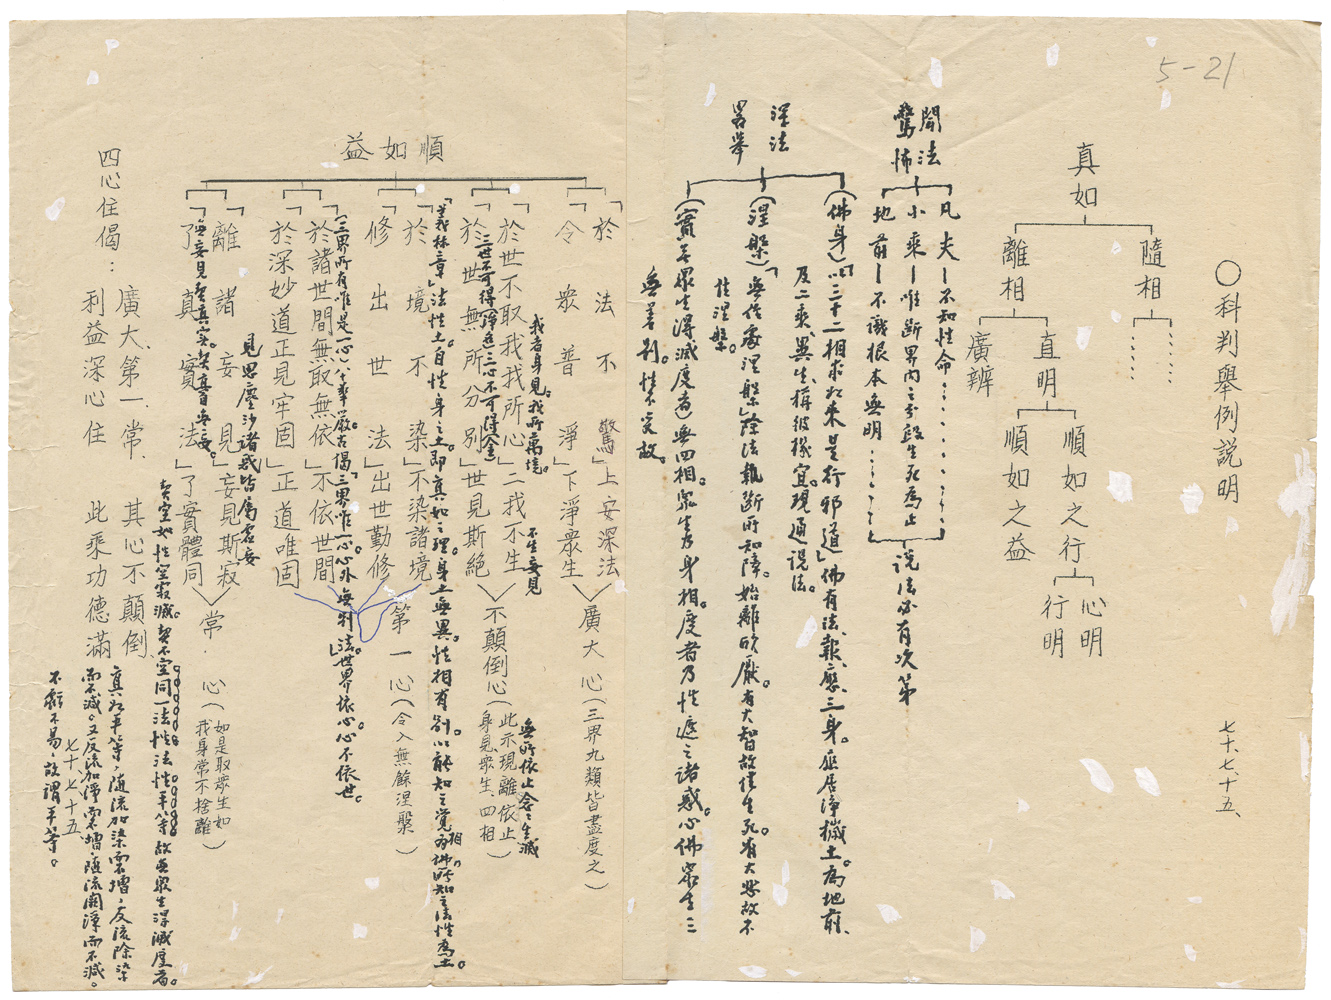 5-21
○科判舉例說明
七十、七、十五、
真如
隨相
離相
直明
廣辨
順如之行
順如之益
心明
行明
聞法
驚怖
凡夫—不知性命
小乘—唯斷界內之分段生死為止
地前—不識根本無明
說法必有次第
深法
畧舉
(佛身)「以三十二相求如來是行邪道」佛有法、報、應、三身。應居淨穢土。為地前、
及二乘、異生、稱彼機宜。現通說法。
(涅槃)「無住處涅槃」除法執斷所知障。始離欣厭。有大智故住生死。有大悲故不
住涅槃。
(實無眾生得滅度者)無四相。眾生為身相。度者乃性遮之諸惑。心佛眾生三
無差別。性不變故。
順如益
「於法不驚」上安深法
令眾普淨」下淨眾生
廣大心(三界九類皆盡度之)
我者身見。我所萬境。
「於世不取我我所心」二我不生
不生妄見
於世無所分別」世見斯絕
(三世不可得(淨返)三心不可得(金)
不顛倒心(此示現離依止
身見眾生、四相)
無所依止念念生滅
「義林章」法性土自性身之土。即真如之理。身土無異。性相有別。以能知之覺相為佛。所知之法性為土。
「於境不染」不染諸境
修出世法」出世勤修
第一心(令入無餘涅槃)
(三界所有唯是一心)八十華嚴。古偈「三界唯一心。心外無別法」世界依心。心不依世。
「於諸世間無取無依」不依世間
於深妙道正見牢固」正道唯固
「離諸妄見」妄見斯寂
見思塵沙諸惑皆屬虛妄
了真實法」了實體同
常心(如是取眾生如
我身常不捨離)
契空如性空寂滅。契不空同一法性法性平等故無眾生得滅度者。
四心住偈：
廣大、第一、常、其心不顛倒、
利益深心住 此乘功德滿
真如平等，隨流加染而不增，反流除染
而不減。又反流加淨而不增，隨流闕淨而不減。
不虧不易，故謂平等。
七十、七、十五、